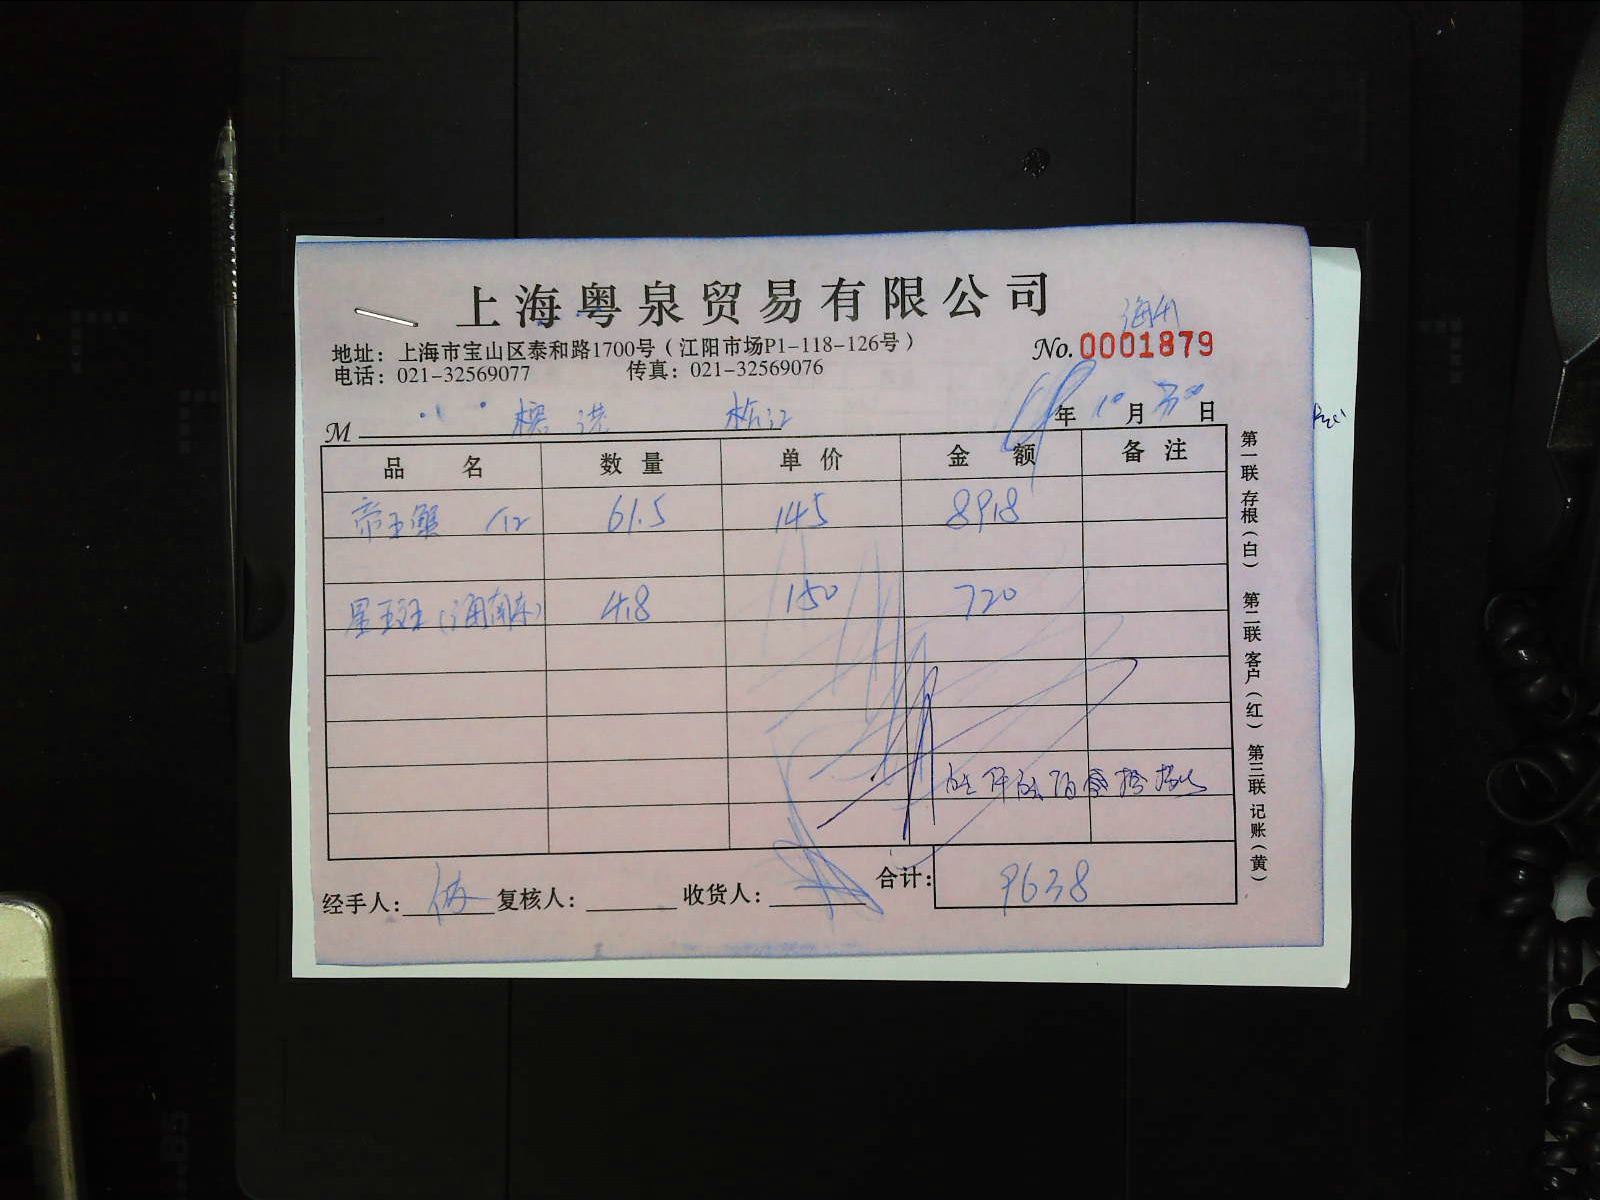 上海粤泉贸易有限公司
地址：上海市宝山区泰和路1700号（江阳市场P1-118-126号）
No.0001879
电话：021-32569077 传真：021-32569076
M 松江 年 10 月 30 日
品名 数量 单价 金额 备注
帝王蟹 61.5 145 8918
星斑 4.8 150 720
合计：9638
经手人： 复核人： 收货人：
第一联 存根（白） 第二联 客户（红） 第三联 记账（黄）